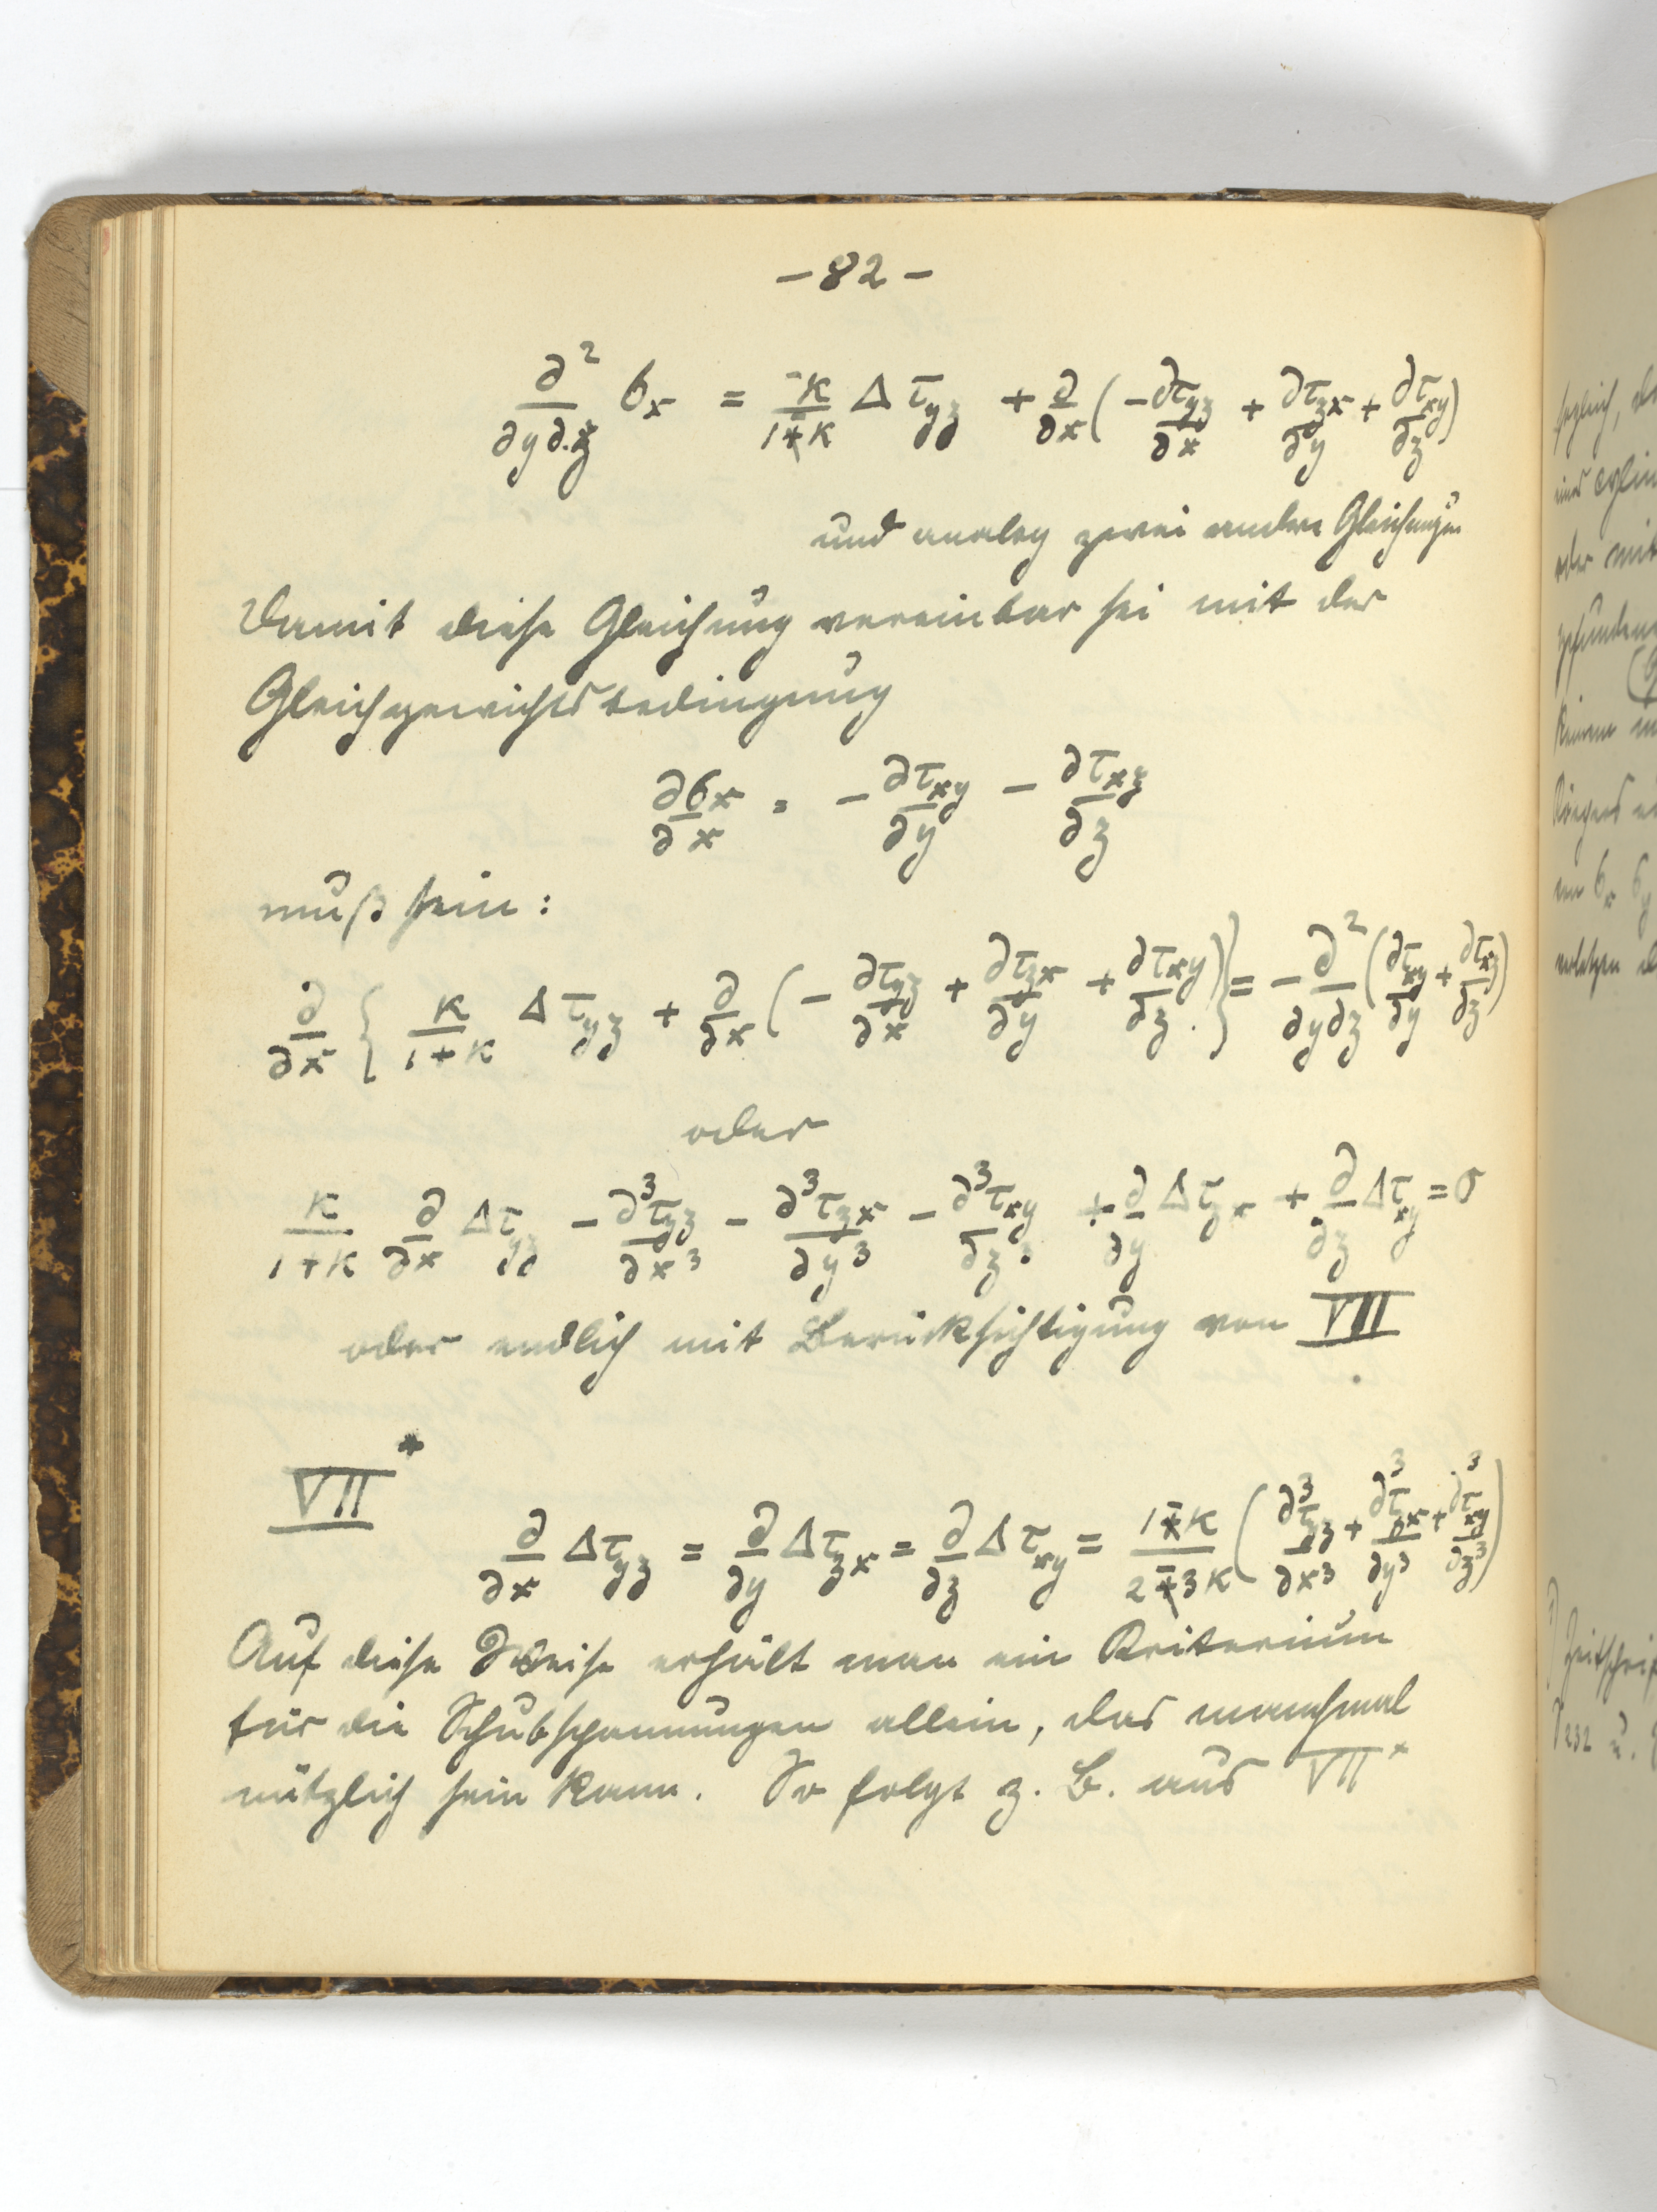 – 82 –
∂²/∂y∂z σx = -κ/1-κ Δ τyz + ∂/∂x (– ∂τyz/∂x + ∂τzx/∂y + ∂τxy/∂z)
und analog zwei andere Gleichungen
Damit diese Gleichung vereinbar sei mit der
Gleichgewichtsbedingung
∂σx/∂x = – ∂τxy/∂y – ∂τxz/∂z
muß sein:
∂/∂x { κ/1+κ Δ τyz + ∂/∂x (– ∂τyz/∂x + ∂τzx/∂y + ∂τxy/∂z) } = – ∂²/∂y∂z (∂τxy/∂y + ∂τxz/∂z)
oder
κ/1+κ ∂/∂x Δτyz – ∂³τyz/∂x³ – ∂³τzx/∂y³ – ∂³τxy/∂z³ + ∂/∂y Δτzx + ∂/∂z Δτxy = 0
oder endlich mit Berücksichtigung von VII
VII*
∂/∂x Δτyz = ∂/∂y Δτzx = ∂/∂z Δτxy = 1-κ/2-3κ (∂³τyz/∂x³ + ∂³τzx/∂y³ + ∂³τxy/∂z³)
Auf diese Weise erhält man ein Kriterium
für die Schubspannungen allein, das manchmal
nützlich sein kann. So folgt z. B. aus VII*